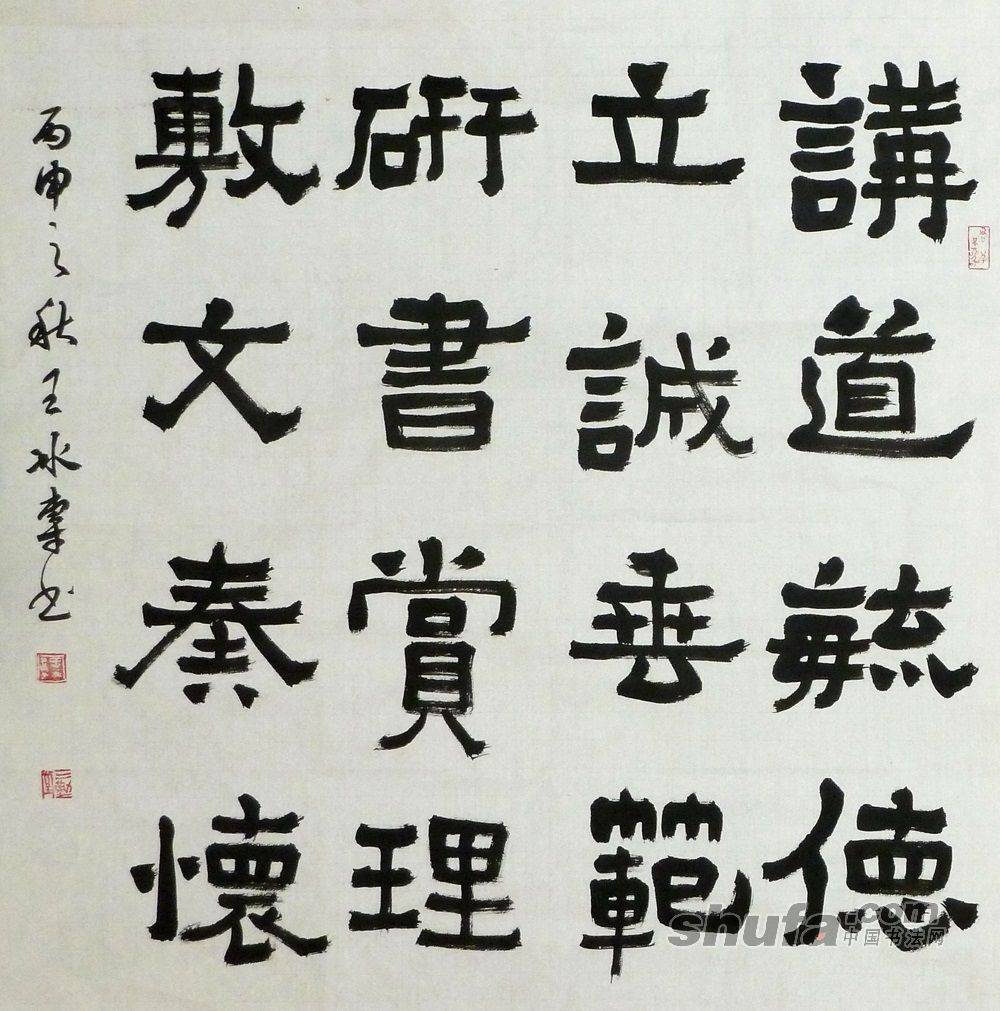 講道毓德
立誠垂範
研書賞理
敷文奏懷
丙申之秋王冰书
shufa.com
中国书法网